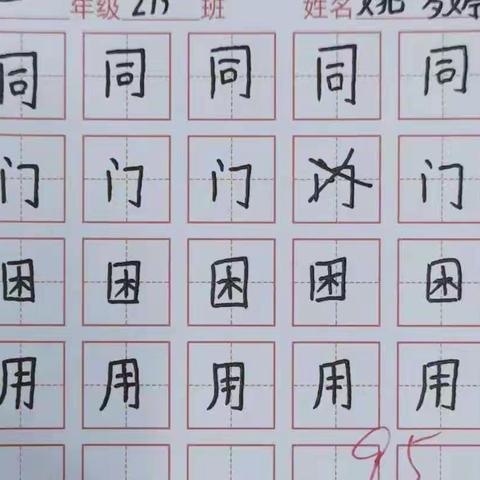 年级 211 班 姓名 姚
同 同 同 同 同
门 门 门 门 门
困 困 困 困 困
用 用 用 用 用
95